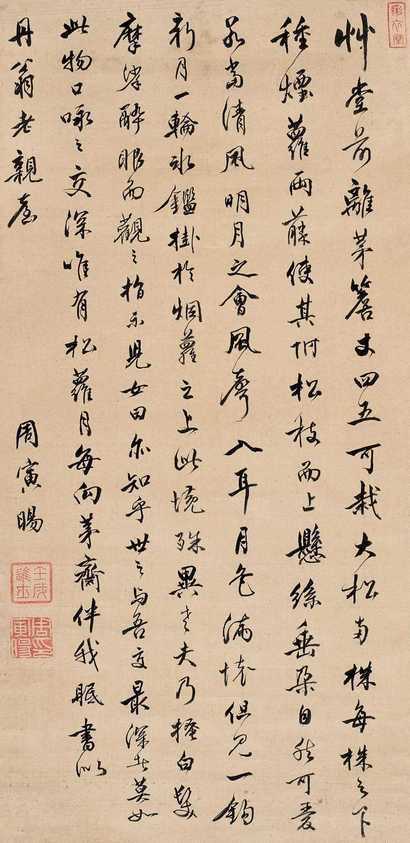 艸堂前離茅簷丈四五可栽大松兩株每株之下
種煙蘿兩藤使其附松枝而上懸絲垂朵自然可愛
若當清風明月之會風聲入耳月色滿懷但見一鉤
新月一輪冰鑑掛於烟蘿之上此境殊異老夫乃搔白髮
摩挲醉眼而觀之指示兒女曰尔知乎世之与吾交最深者莫如
此物口咏之交深唯有松蘿月每向茅齋伴我眠書似
丹翁老親臺
周寅暘
壬戌進士
周印寅暘